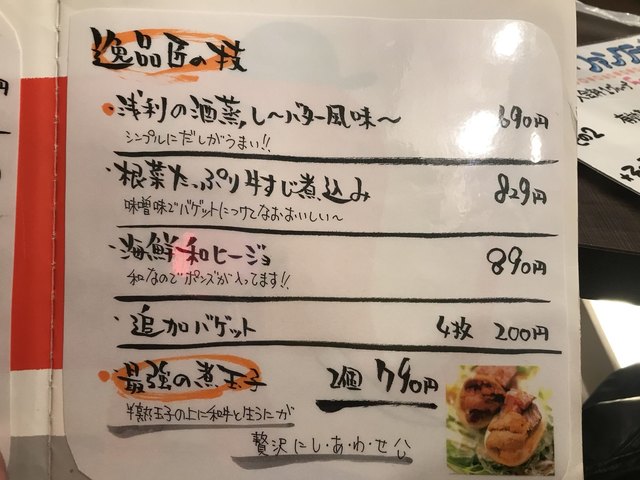 逸品匠の技
・浅利の酒蒸し〜バター風味〜 690円
シンプルにだしがうまい!!
・根菜たっぷり牛すじ煮込み 829円
味噌味でバゲットにつけてなおおいしい〜
・海鮮和ヒージョ 890円
和なのでポンズが入ってます!!
・追加バゲット 4枚 200円
・最強の煮玉子 2個 790円
半熟玉子の上に和牛と生うにが
贅沢にし・あ・わ・せ